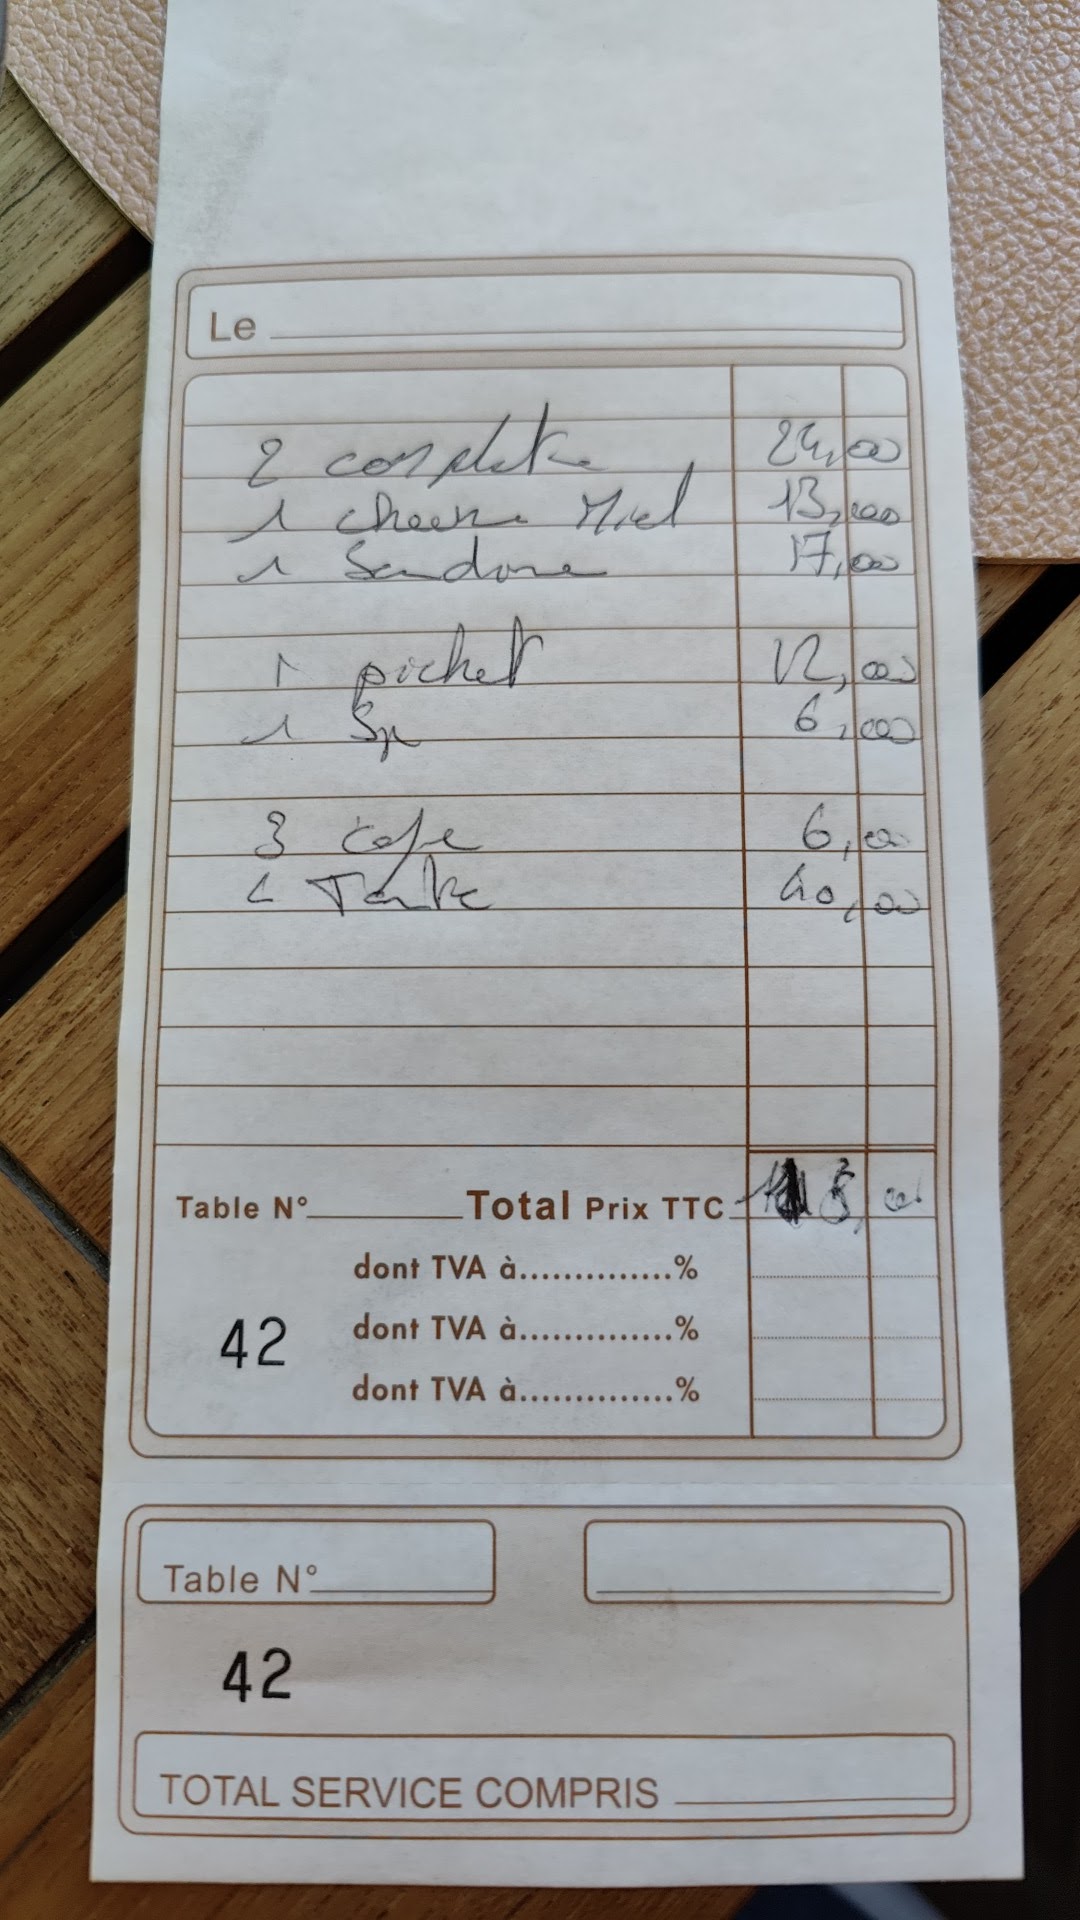 Le
2 complète 24,00
1 cheese Miel 13,00
1 17,00
1 pichet 12,00
1 6,00
3 cafe 6,00
40,00
Table N° Total Prix TTC
dont TVA à..............%
42 dont TVA à..............%
dont TVA à..............%
Table N°
42
TOTAL SERVICE COMPRIS